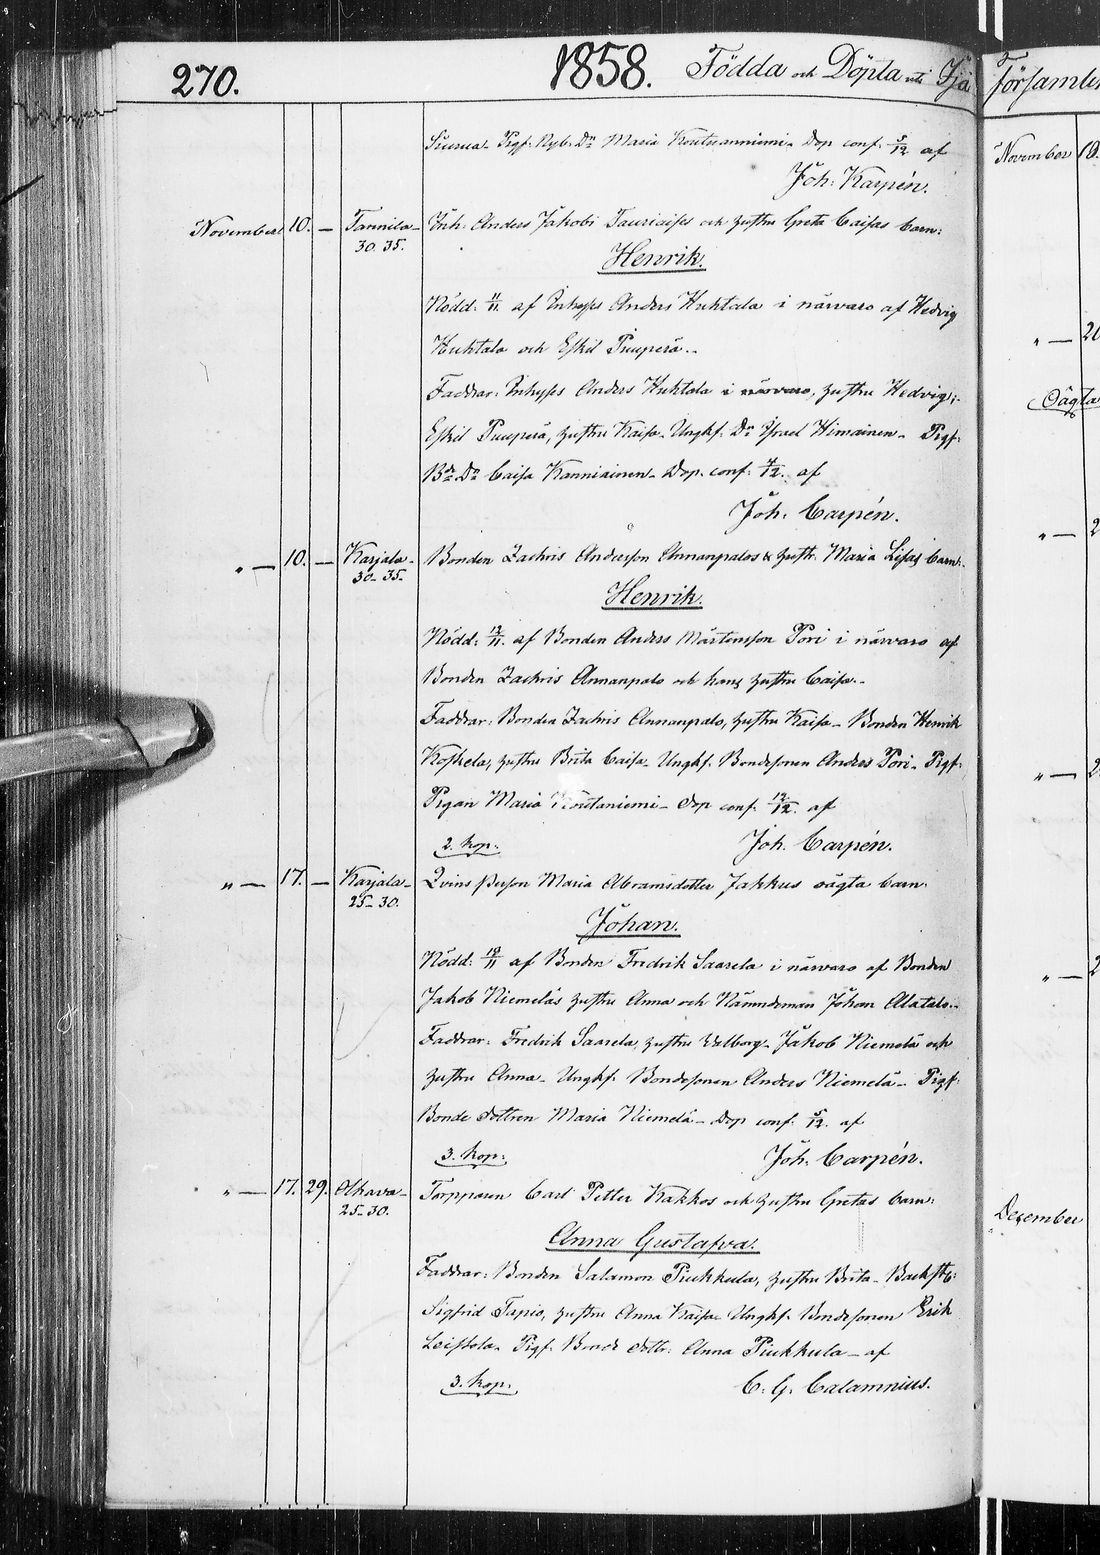 270.
1858. Födda och Döpta uti Ijå
Siurua. Pigf. Nyb. Dr Maria Koutuanniemi. Dop. conf. 5/12. af
Joh: Karpén.
November 10. — Tannila - Inh. Anders Jakobi Tauriaises och hustru Greta Caisas barn:
30. 35.
Henrik.
Nödd. 11/11. af Inhyses Anders Huhtala i närvaro af Hedvig
Huhtala och Eskil Puuperä..
Faddrar: Inhyses Anders Huhtala i närvaro, hustru Hedvig,
Eskil Puuperä, hustru Kaisa. Ungkf. Dr Israel Himainen. Pigf.
Bde Dr Caisa Kanniainen. Dop. conf. 4/12. af
Joh. Carpén.
" — 10. — Karjala - Bonden Zachris Andersson Annanpalos & hustr. Maria Lisas barn:
30 - 35.
Henrik.
Nödd: 12/11. af Bonden Anders Mårtensson Pori i närvaro af
Bonden Zachris Annanpalo och hans hustru Caisa..
Faddrar: Bonden Zachris Annanpalo, hustru Kaisa - Bonden Henrik
Koskela, hustru Brita Caisa. Ungkf. Bondesonen Anders Pori. Pigf.
Pigan Maria Koutaniemi - Dop conf. 12/12. af
2. kop. Joh. Carpén.
" — 17. — Karjala - Qvins person Maria Abramsdotter Jakkus oägta barn.
25 - 30.
Johan.
Nödd. 19/11 af Bonden Fredrik Saarela i närvaro af Bonden
Jakob Niemeläs hustru Anna och Nämndeman Johan Alatalo..
Faddrar: Fredrik Saarela, hustru Walborg. Jakob Niemelä och
hustru Anna - Ungkf. Bondesonen Anders Niemelä - Pigf.
Bonde dottren Maria Niemelä - Dop conf. 5/12. af
3. kop: Joh. Carpén.
" — 17. 29. Olhava - Torpparen Carl Petter Kakkos och hustru Gretas barn:
25 - 30.
Anna Gustafva.
Faddrar: Bonden Salamon Piukkula, hustru Brita - Backstg:
Sigfrid Tapio, hustru Anna Kaisa. Ungkf. Bondesonen Erik
Leistola. Pigf. Bonde dottr. Anna Piukkula - af
3. kop. C. G. Calamnius.
Församlin
November 10.
" — 20
Oägta
" — 2
" — 2
" — 2
December